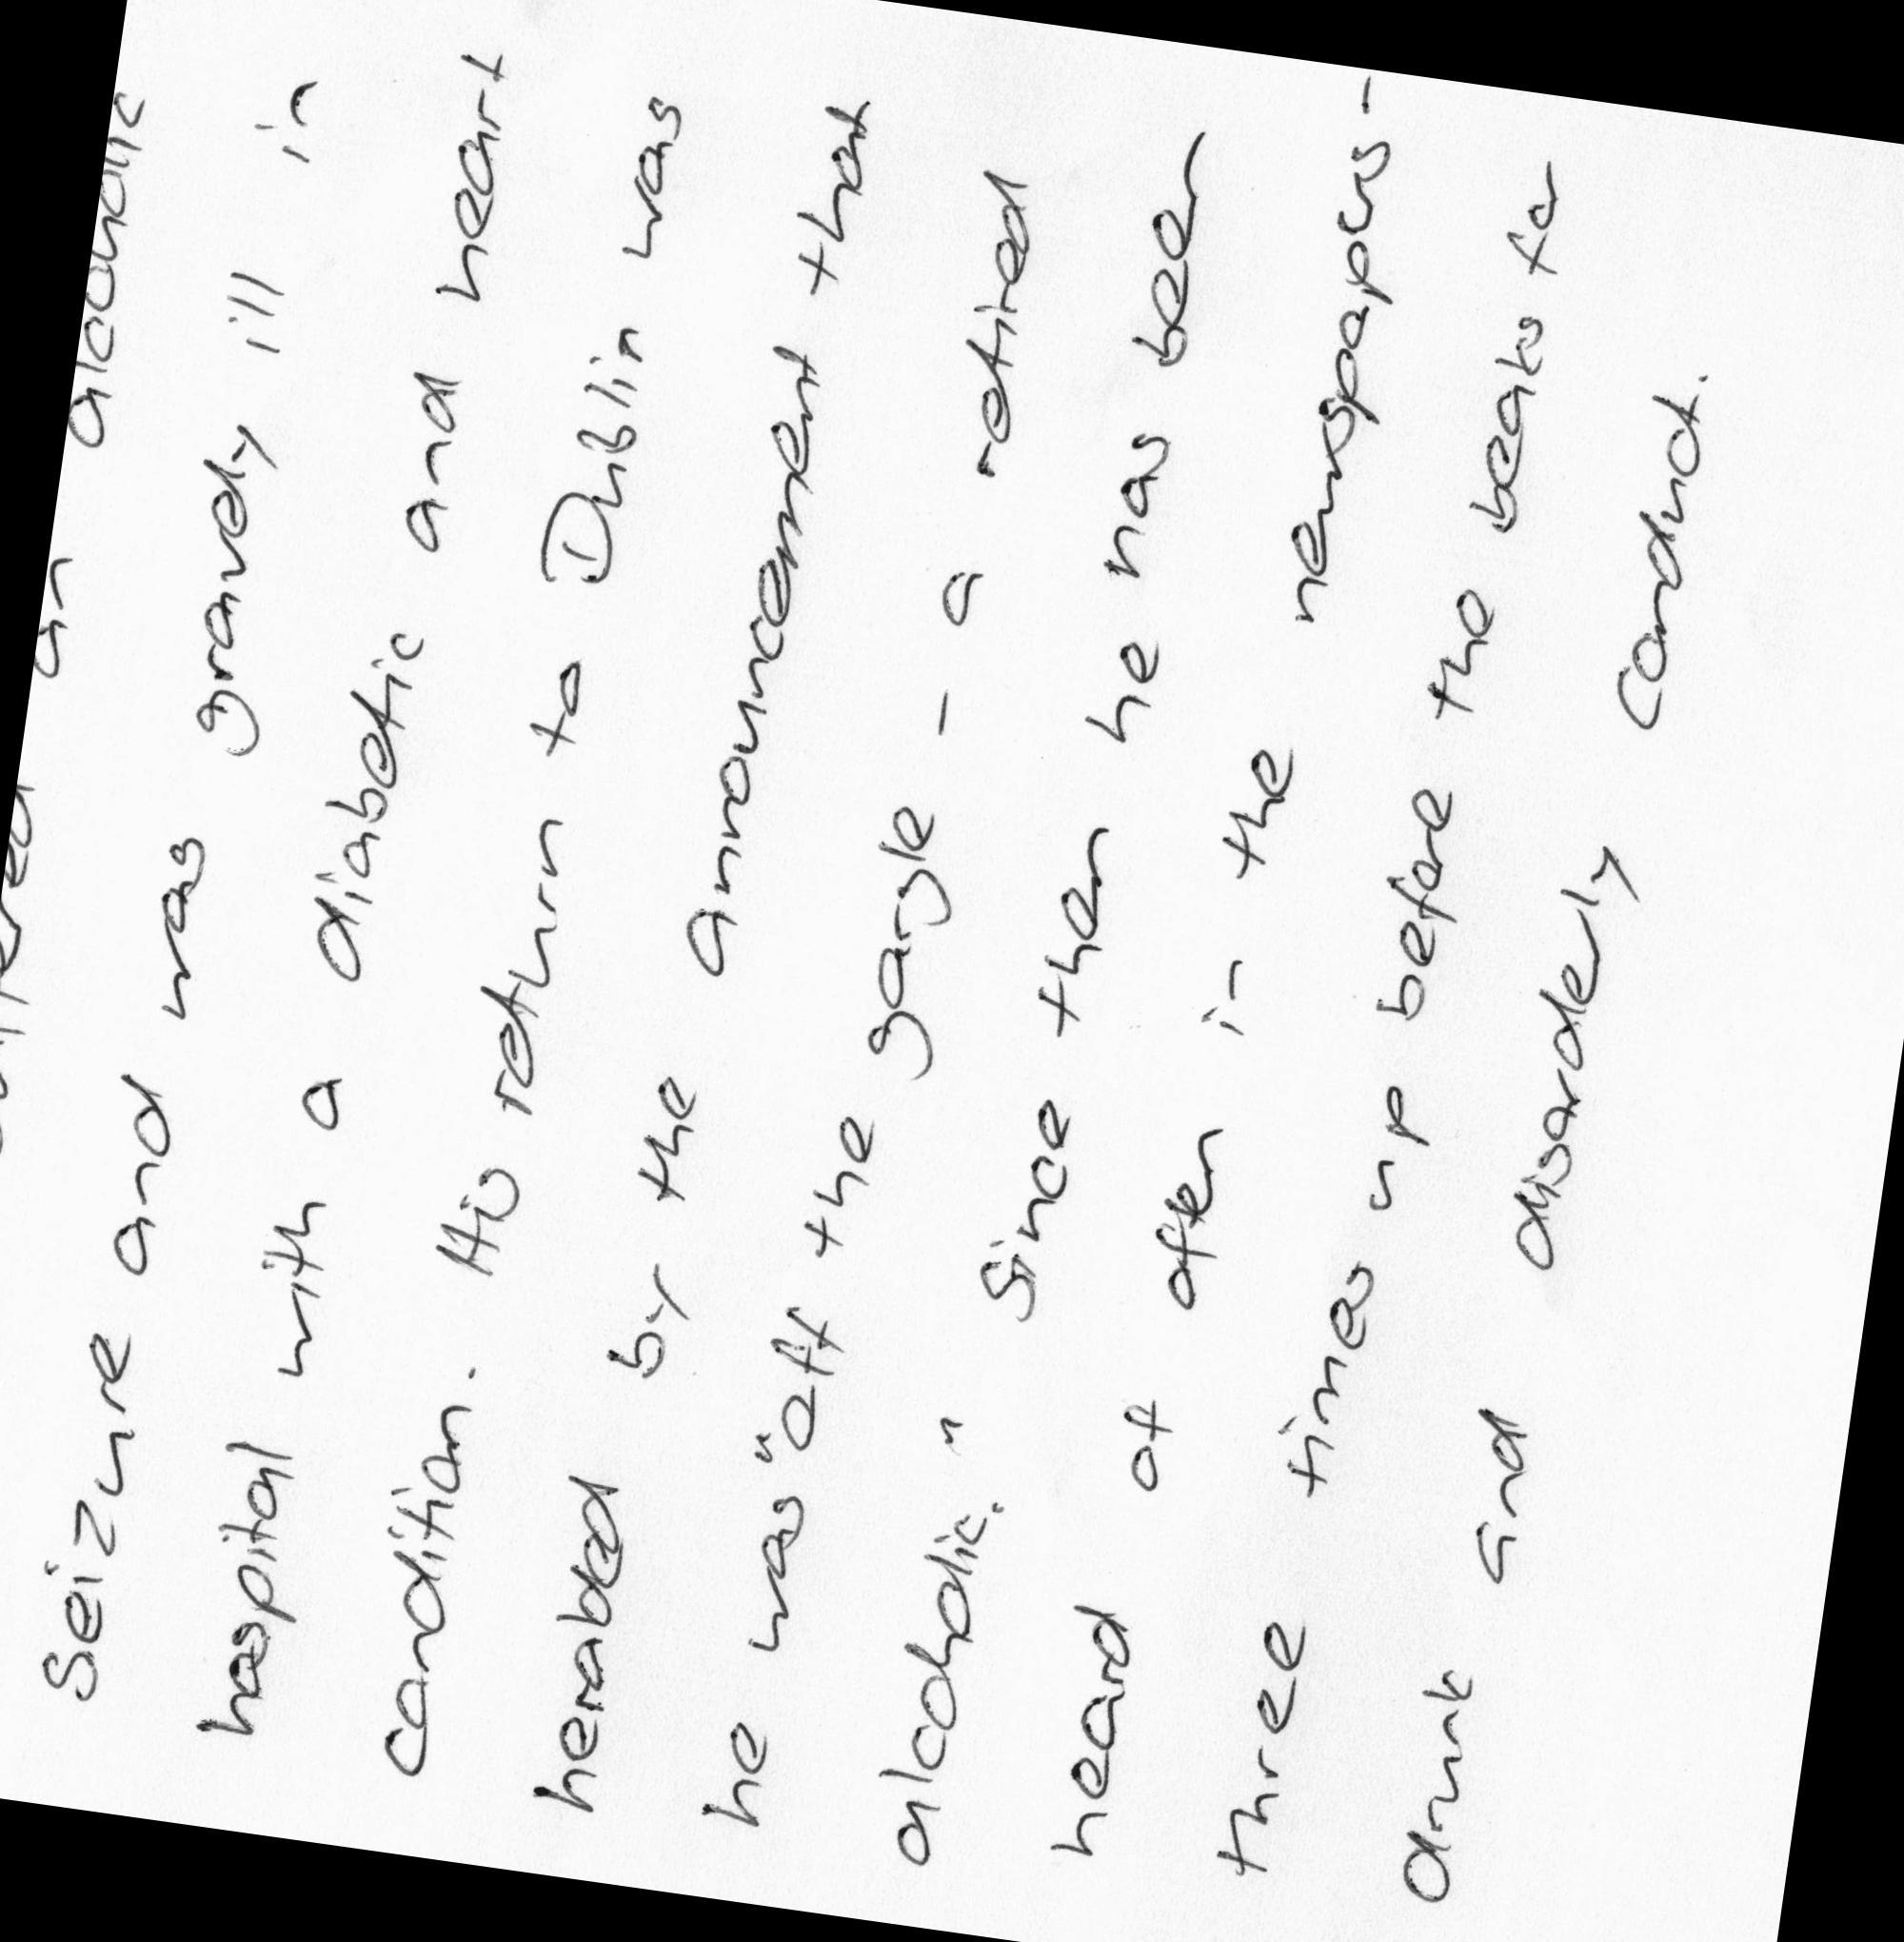 an alcoholic
Seizure and was gravely ill in
hospital with a diabetic and heart
condition. His return to Dublin was
herabled by the announcement that
he was "off the gargle - a retired
alcoholic." Since then he has been
heard of often in the newspapers -
three times up before the beaks for
drunk and disorderly conduct.